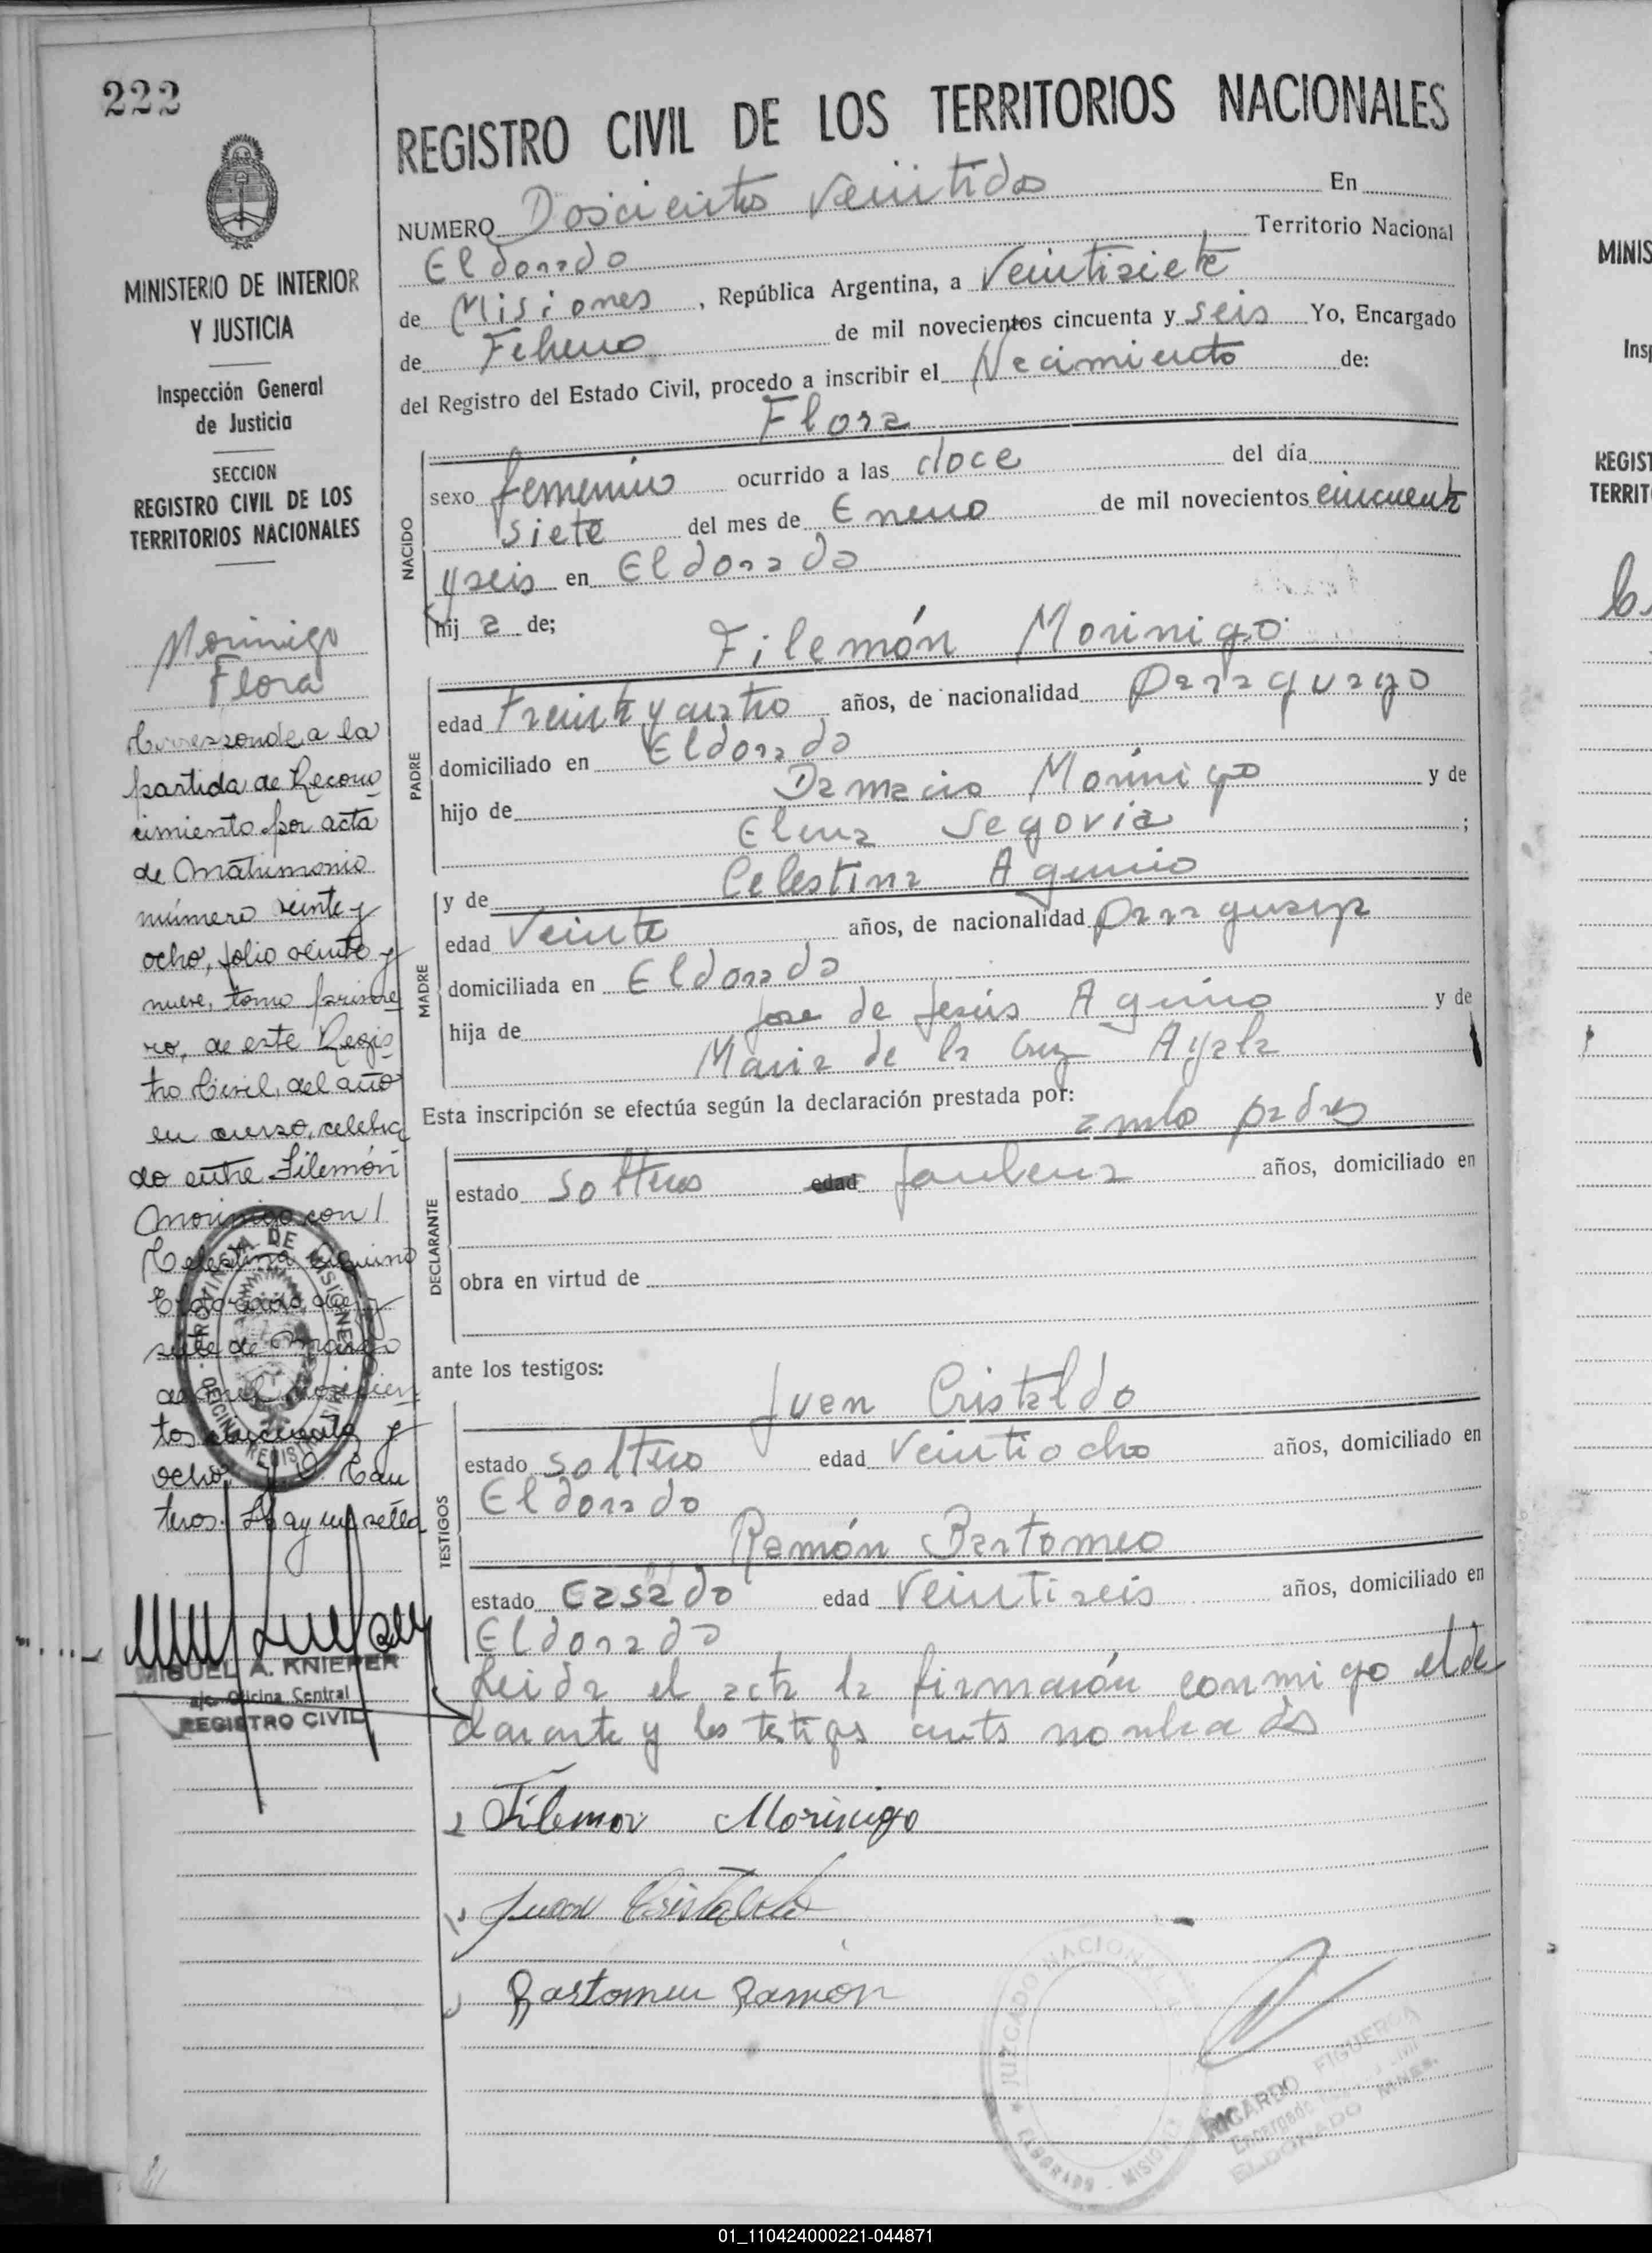 222
MINISTERIO DE INTERIOR
Y JUSTICIA
Inspección General
de Justicia
SECCION
REGISTRO CIVIL DE LOS
TERRITORIOS NACIONALES
Morinigo
Flora
Corresponde a la
partida de Recono
cimiento por acta
de Matrimonio
número veinte y
ocho, folio veinte y
nueve, tomo prime
ro, de este Regis
tro Civil, del año
en curso, celebra
do entre Filemón
Morinigo con /
Celestina Aquino
Eldorado,
siete de Marzo
de mil novecien
tos cincuenta y
ocho.
teros. Hay un sello
PROVINCIA DE MISIONES
MIGUEL A. KNIEPER
a/c. Oficina Central
REGISTRO CIVIL
REGISTRO CIVIL DE LOS TERRITORIOS NACIONALES
NUMERO Doscientos Veintidos En
Eldorado Territorio Nacional
de Misiones, República Argentina, a Veintisiete
de Febrero de mil novecientos cincuenta y seis Yo, Encargado
del Registro del Estado Civil, procedo a inscribir el Nacimiento de:
Flora
NACIDO
sexo femenino ocurrido a las doce del día
siete del mes de Enero de mil novecientos cincuenta
y seis en Eldorado
hij a de;
Filemón Morinigo
PADRE
edad Treinta y cuatro años, de nacionalidad Paraguayo
domiciliado en Eldorado
hijo de Damacio Morinigo y de
Elena Segovia ;
y de Celestina Aquino
MADRE
edad Veinte años, de nacionalidad Paraguaya
domiciliada en Eldorado
hija de Jose de Jesús Aquino y de
Maria de la Cruz Ayala
Esta inscripción se efectúa según la declaración prestada por:
ambo padres
DECLARANTE
estado solteros edad años, domiciliado en
obra en virtud de
ante los testigos:
Juan Cristaldo
TESTIGOS
estado soltero edad Veintiocho años, domiciliado en
Eldorado
Ramón Bartomeo
estado casado edad Veintiseis años, domiciliado en
Eldorado
Leida el acta la firmarón conmigo el de
clarante y los testigos ants nombrados
Filemon Morinigo
Juan Cristaldo
Bartomeu Ramón
JUZGADO NACIONAL
ELDORADO - MISIONES
RICARDO FIGUEROA
Encargado
ELDORADO MNES.
MINIS
Insp
REGIST
TERRIT
01_110424000221-044871